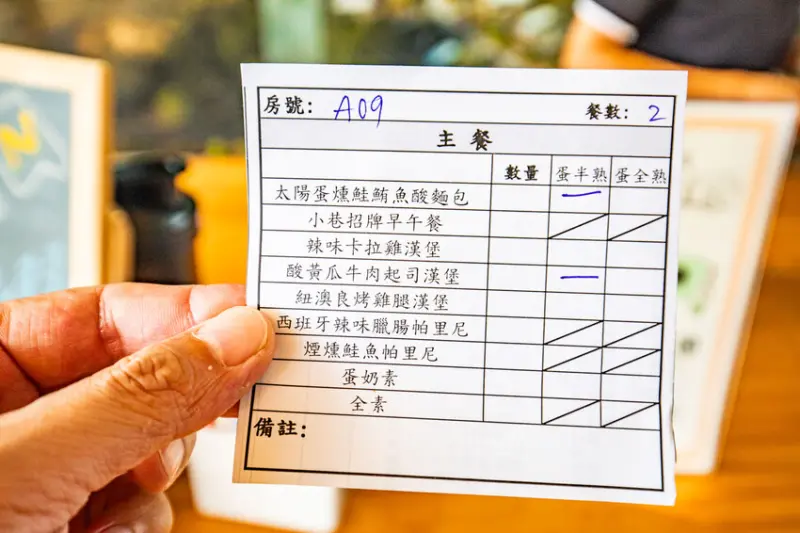 房號: A09 餐數: 2
主餐
數量 蛋半熟 蛋全熟
太陽蛋燻鮭鮪魚酸麵包 一
小巷招牌早午餐
辣味卡拉雞漢堡
酸黃瓜牛肉起司漢堡 一
紐澳良烤雞腿漢堡
西班牙辣味臘腸帕里尼
煙燻鮭魚帕里尼
蛋奶素
全素
備註: